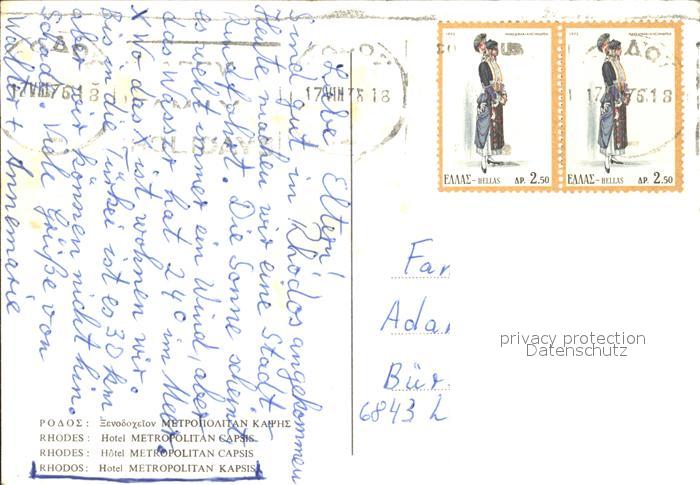 Liebe Eltern!
Sind gut in Rhodos angekommen
Heute machen wir eine Stadt-
Rundfahrt. Die Sonne scheint
es geht immer ein Wind, aber
das Wasser hat 24° im Meer.
X Wo das X ist wohnen wir.
Bis in die Türkei ist es 30 km
aber wir können nicht hin.
Schade. Viele Grüße von
Walter + Annemarie
17 VIII 76 18
HOLIDAYS
ΕΛΛΑΣ-HELLAS ΔΡ. 2.50
ΕΛΛΑΣ-HELLAS ΔΡ. 2.50
Fam
Adam
Bür
6843
privacy protection
Datenschutz
ΡΟΔΟΣ: Ξενοδοχεῖον ΜΕΤΡΟΠΟΛΙΤΑΝ ΚΑΨΗΣ
RHODES: Hotel METROPOLITAN CAPSIS
RHODES: Hôtel METROPOLITAN CAPSIS
RHODOS: Hotel METROPOLITAN KAPSIS